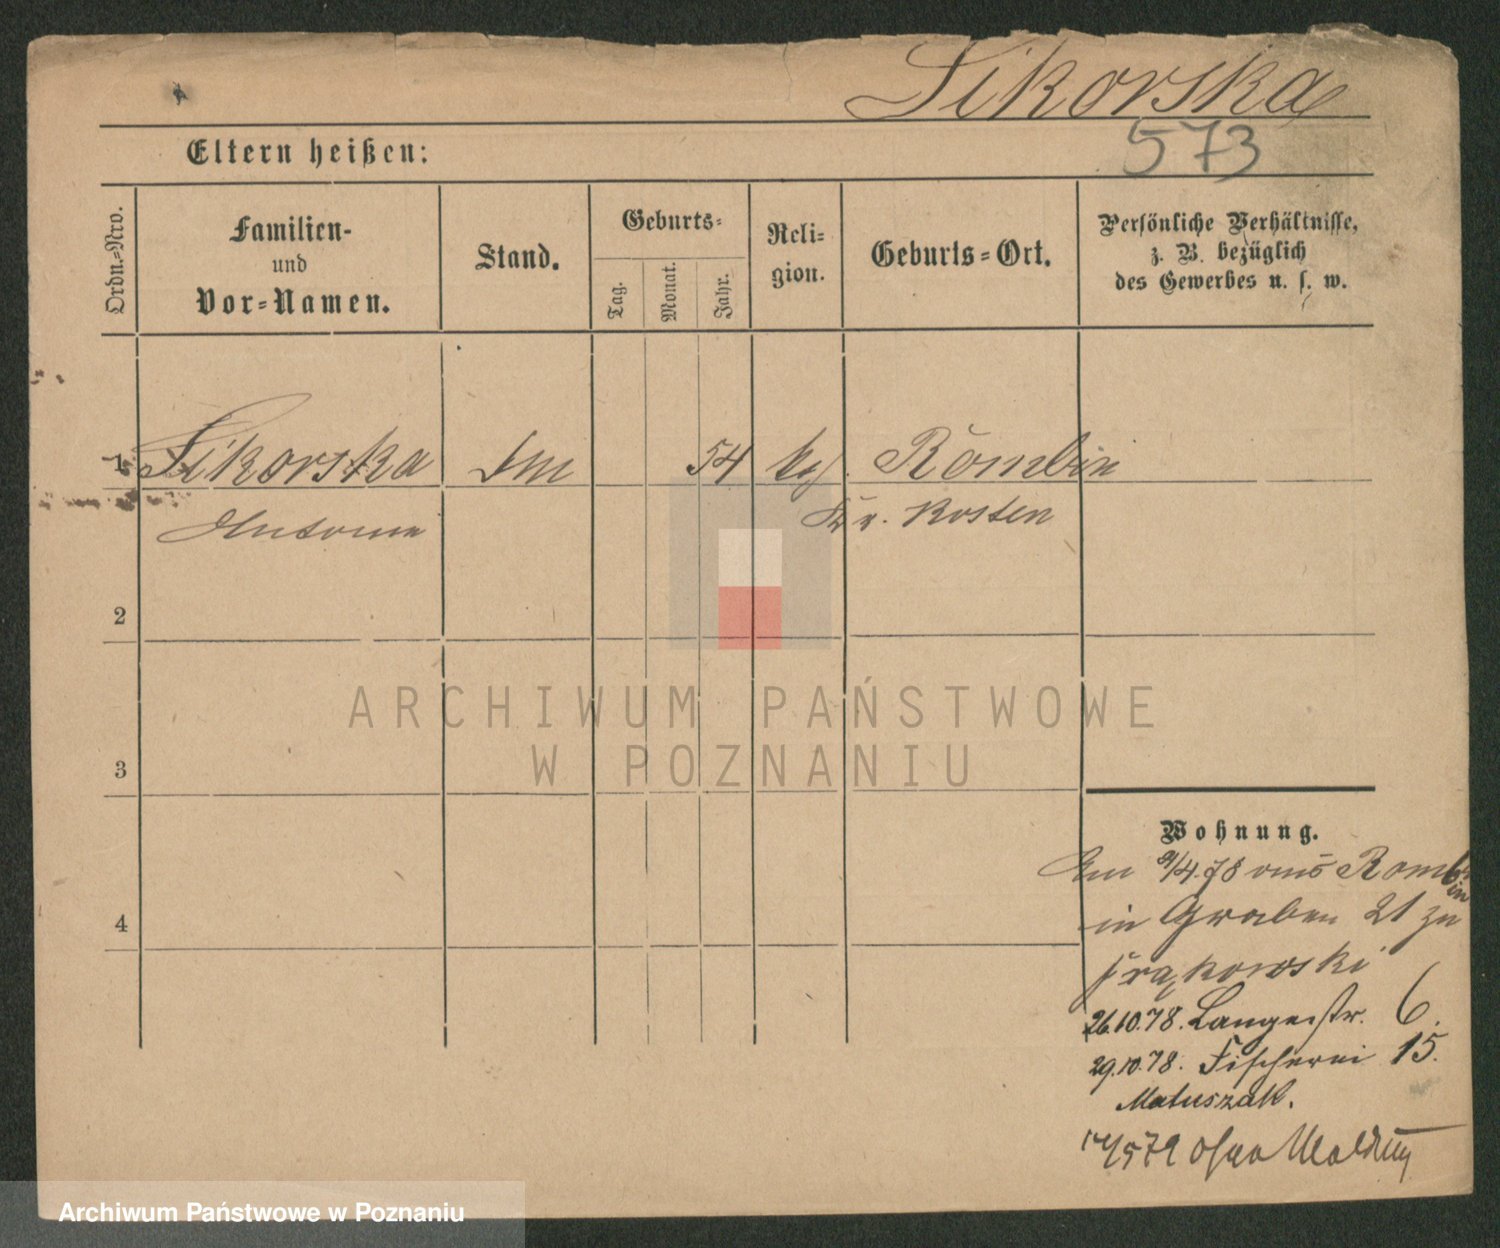 Sikorska
573
Eltern heißen:
Ordn.-Nro.
Familien-
und
Vor-Namen.
Stand.
Geburts-
Tag.
Monat.
Jahr.
Reli-
gion.
Geburts-Ort.
Persönliche Verhältnisse,
z. B. bezüglich
des Gewerbes u. s. w.
1 Sikorska 54 Rombin
Antonie Kr. Kosten
2
ARCHIWUM PAŃSTWOWE
W POZNANIU
3
Wohnung.
Am 9/4.78 aus Rombin
4
in Graben 21 zu
26.10.78. Langestr. 6.
29.10.78. Fischerei 15.
Matuszak.
ohne Meldung
Archiwum Państwowe w Poznaniu